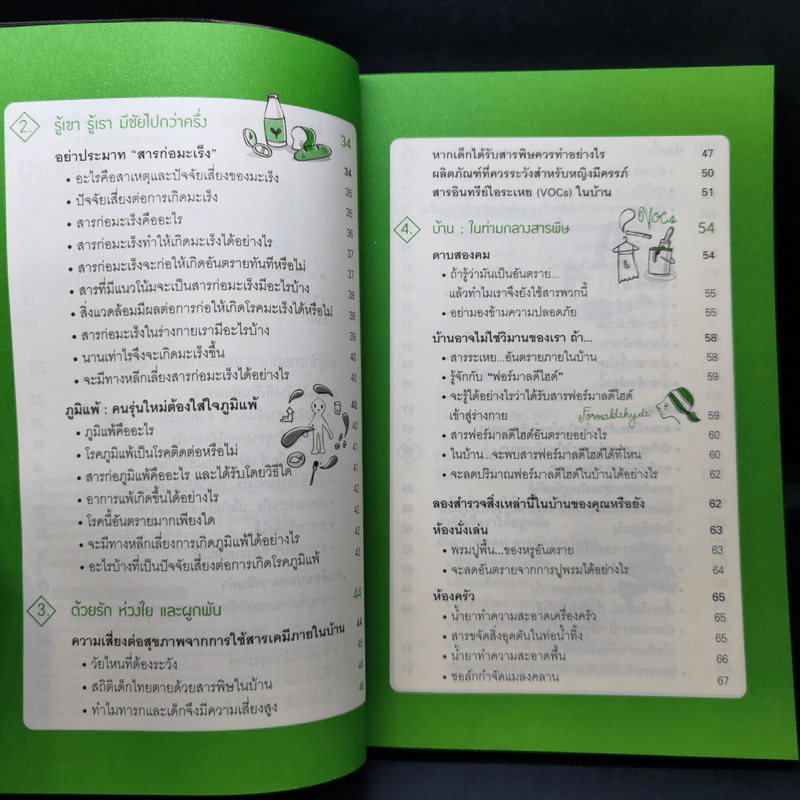 2. รู้เขา รู้เรา มีชัยไปกว่าครึ่ง 34
อย่าประมาท "สารก่อมะเร็ง" 34
• อะไรคือสาเหตุและปัจจัยเสี่ยงของมะเร็ง 35
• ปัจจัยเสี่ยงต่อการเกิดมะเร็ง 35
• สารก่อมะเร็งคืออะไร 36
• สารก่อมะเร็งทำให้เกิดมะเร็งได้อย่างไร 37
• สารก่อมะเร็งจะก่อให้เกิดอันตรายทันทีหรือไม่ 37
• สารที่มีแนวโน้มจะเป็นสารก่อมะเร็งมีอะไรบ้าง 38
• สิ่งแวดล้อมมีผลต่อการก่อให้เกิดโรคมะเร็งได้หรือไม่ 38
• สารก่อมะเร็งในร่างกายเรามีอะไรบ้าง
• นานเท่าไรจึงจะเกิดมะเร็งขึ้น 40
• จะมีทางหลีกเลี่ยงสารก่อมะเร็งได้อย่างไร 40
ภูมิแพ้ : คนรุ่นใหม่ต้องใส่ใจภูมิแพ้ 40
• ภูมิแพ้คืออะไร
• โรคภูมิแพ้เป็นโรคติดต่อหรือไม่
• สารก่อภูมิแพ้คืออะไร และได้รับโดยวิธีใด
• อาการแพ้เกิดขึ้นได้อย่างไร 42
• โรคนี้อันตรายมากเพียงใด 42
• จะมีทางหลีกเลี่ยงการเกิดภูมิแพ้ได้อย่างไร
• อะไรบ้างที่เป็นปัจจัยเสี่ยงต่อการเกิดโรคภูมิแพ้ 43
3. ด้วยรัก ห่วงใย และผูกพัน 44
ความเสี่ยงต่อสุขภาพจากการใช้สารเคมีภายในบ้าน 44
• วัยไหนที่ต้องระวัง
• สถิติเด็กไทยตายด้วยสารพิษในบ้าน 46
• ทำไมทารกและเด็กจึงมีความเสี่ยงสูง 46
หากเด็กได้รับสารพิษควรทำอย่างไร 47
ผลิตภัณฑ์ที่ควรระวังสำหรับหญิงมีครรภ์ 50
สารอินทรีย์ไอระเหย (VOCs) ในบ้าน 51
VOCs
4. บ้าน : ในท่ามกลางสารพิษ 54
ดาบสองคม 54
• ถ้ารู้ว่ามันเป็นอันตราย...
แล้วทำไมเราจึงยังใช้สารพวกนี้ 55
• อย่ามองข้ามความปลอดภัย 55
บ้านอาจไม่ใช่วิมานของเรา ถ้า... 58
• สารระเหย...อันตรายภายในบ้าน 58
• รู้จักกับ "ฟอร์มาลดีไฮด์" 59
• จะรู้ได้อย่างไรว่าได้รับสารฟอร์มาลดีไฮด์
เข้าสู่ร่างกาย 59
Formaldehyde
• สารฟอร์มาลดีไฮด์อันตรายอย่างไร 60
• ในบ้าน...จะพบสารฟอร์มาลดีไฮด์ได้ที่ไหน 60
• จะลดปริมาณฟอร์มาลดีไฮด์ในบ้านได้อย่างไร 62
ลองสำรวจสิ่งเหล่านี้ในบ้านของคุณหรือยัง 62
ห้องนั่งเล่น 63
• พรมปูพื้น...ของหรูอันตราย 63
• จะลดอันตรายจากการปูพรมได้อย่างไร 64
ห้องครัว 65
• น้ำยาทำความสะอาดเครื่องครัว 65
• สารขจัดสิ่งอุดตันในท่อน้ำทิ้ง 65
• น้ำยาทำความสะอาดพื้น 66
• ชอล์กกำจัดแมลงคลาน 67